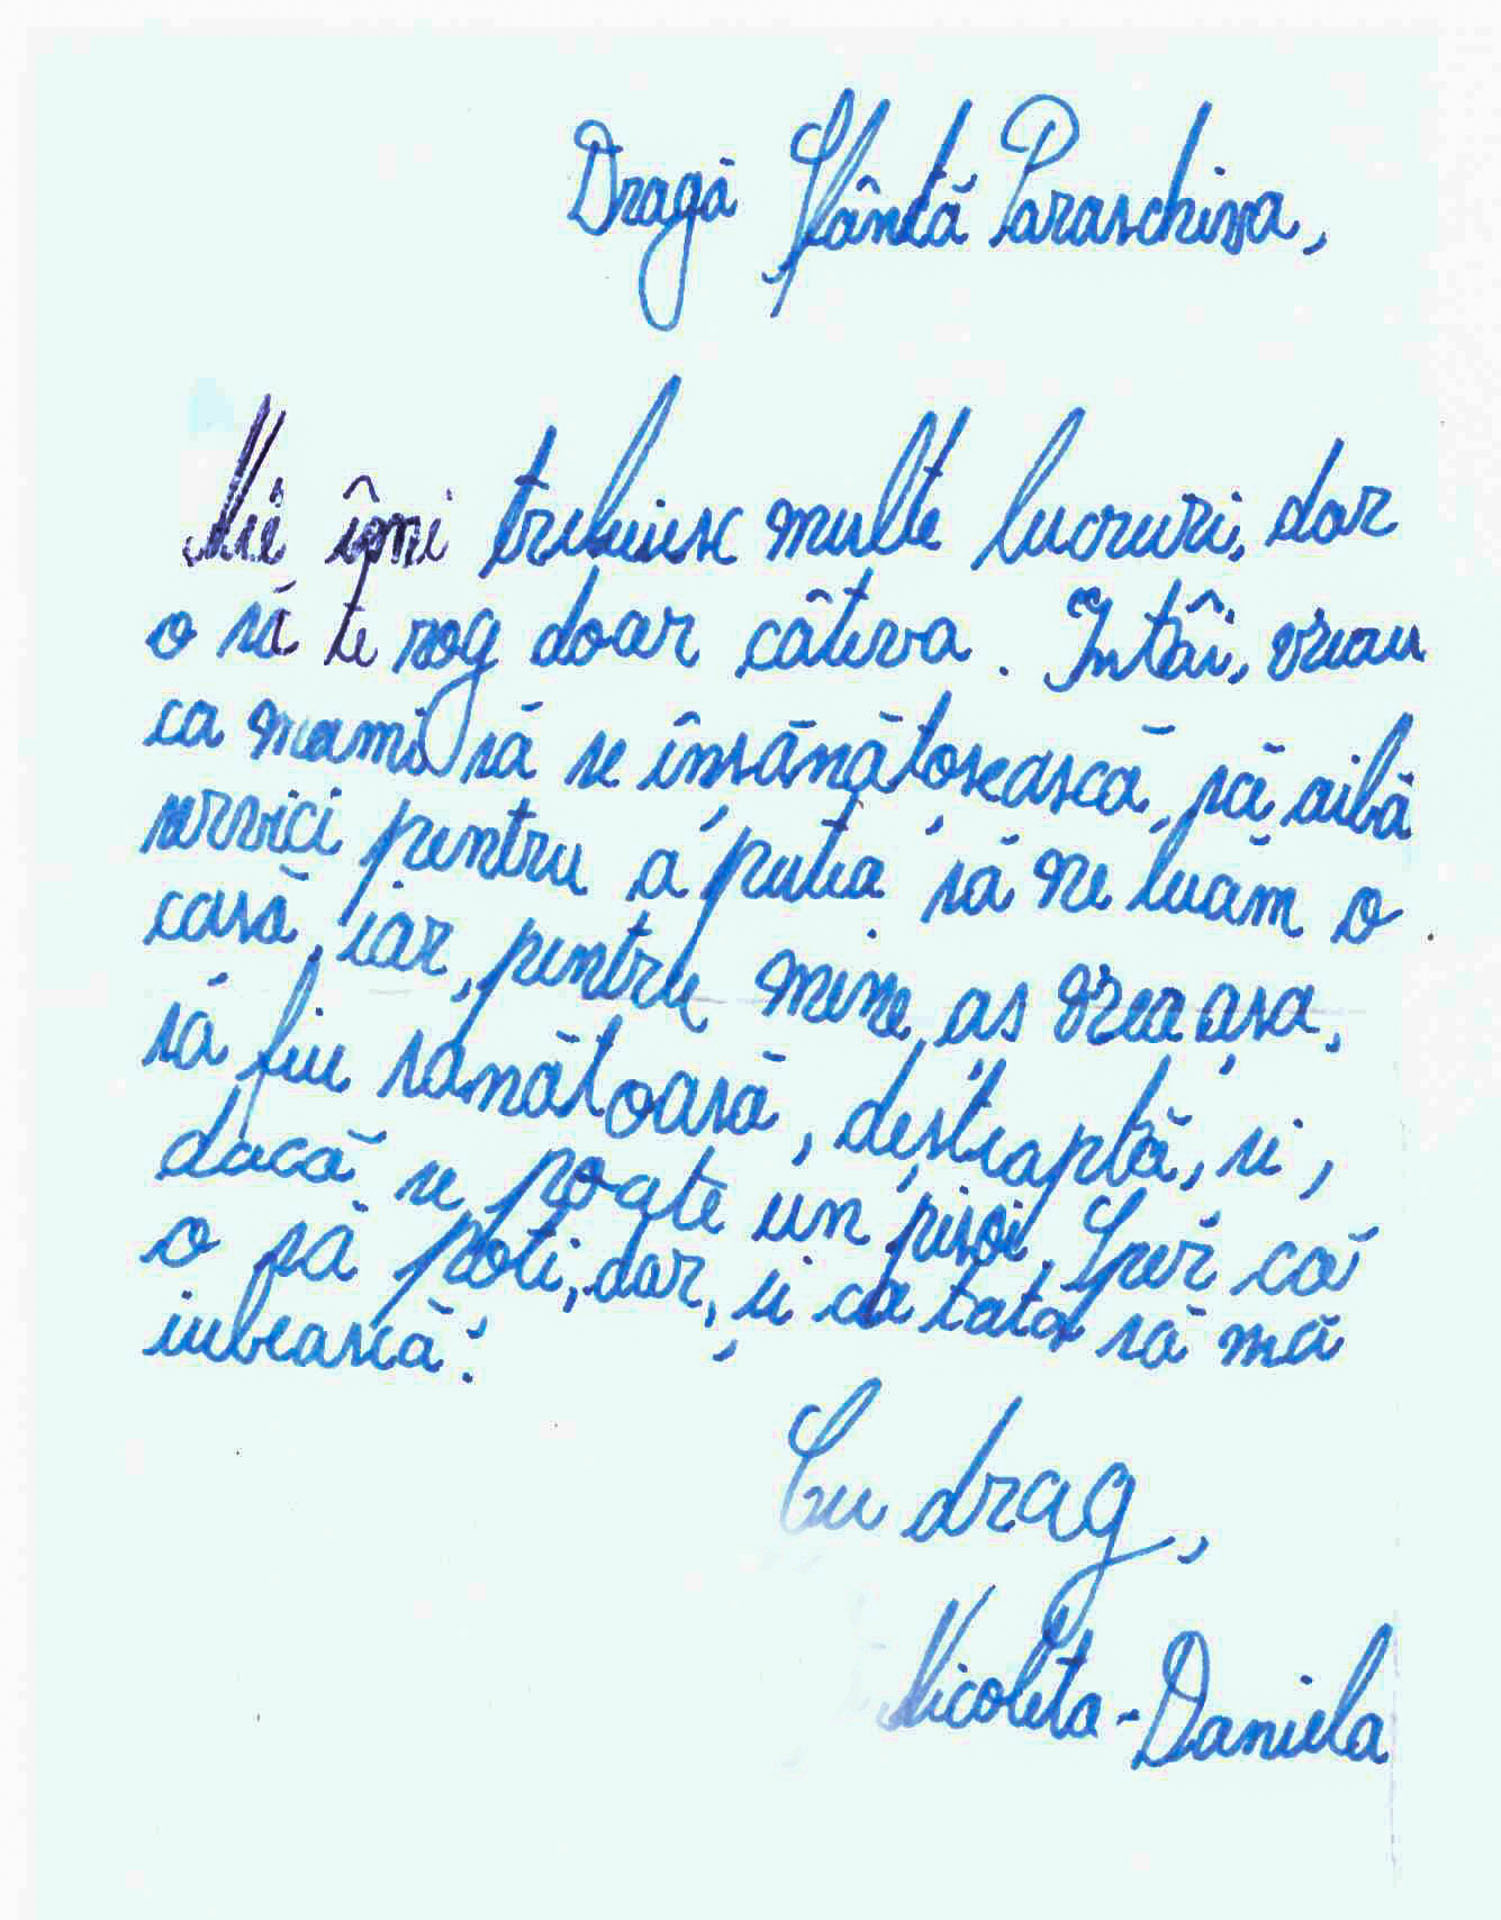 Dragă Sfântă Paraschiva,
Mie îmi trebuiesc multe lucruri, dar
o să te rog doar câteva. Întâi, vreau
ca mami să se însănătoșească, să aibă
servici pentru a putea să ne luăm o
casă, iar, pentru mine, aș vrea așa,
să fiu sănătoasă, deșteaptă, și,
dacă se poate un pisoi. Sper că
o să poți, dar, și ca tata să mă
iubească!
Cu drag,
Nicoleta-Daniela